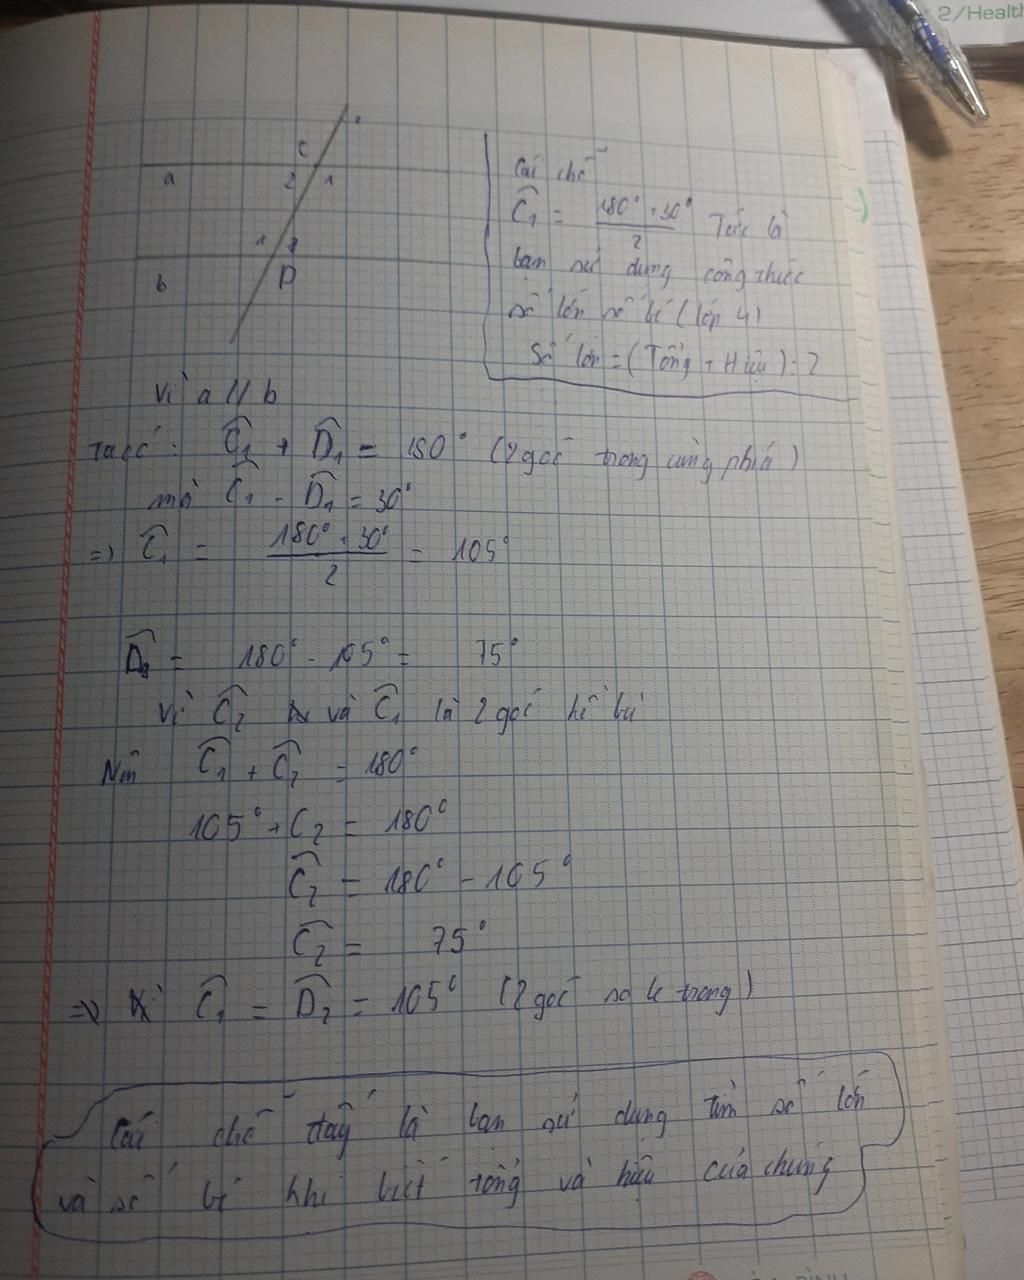 2/Health
C
a
2
1
1
2
b
D
Cái chỗ
Ĉ₁ = (180° + 30°)/2 Tức là
bạn sử dụng công thức
số lớn số bé (lớp 4)
Số lớn = (Tổng + Hiệu) : 2
Vì a // b
Ta có : Ĉ₁ + D̂₁ = 180° (2 góc trong cùng phía)
mà Ĉ₁ - D̂₁ = 30°
=> Ĉ₁ = (180° + 30°)/2 = 105°
D̂₁ = 180° - 105° = 75°
Vì Ĉ₂ và Ĉ₁ là 2 góc kề bù
Nên Ĉ₁ + Ĉ₂ = 180°
105° + C₂ = 180°
Ĉ₂ = 180° - 105°
Ĉ₂ = 75°
=> Ĉ₁ = D̂₂ = 105° (2 góc so le trong)
Cái chỗ đấy là bạn sử dụng tìm số lớn
và số bé khi biết tổng và hiệu của chúng